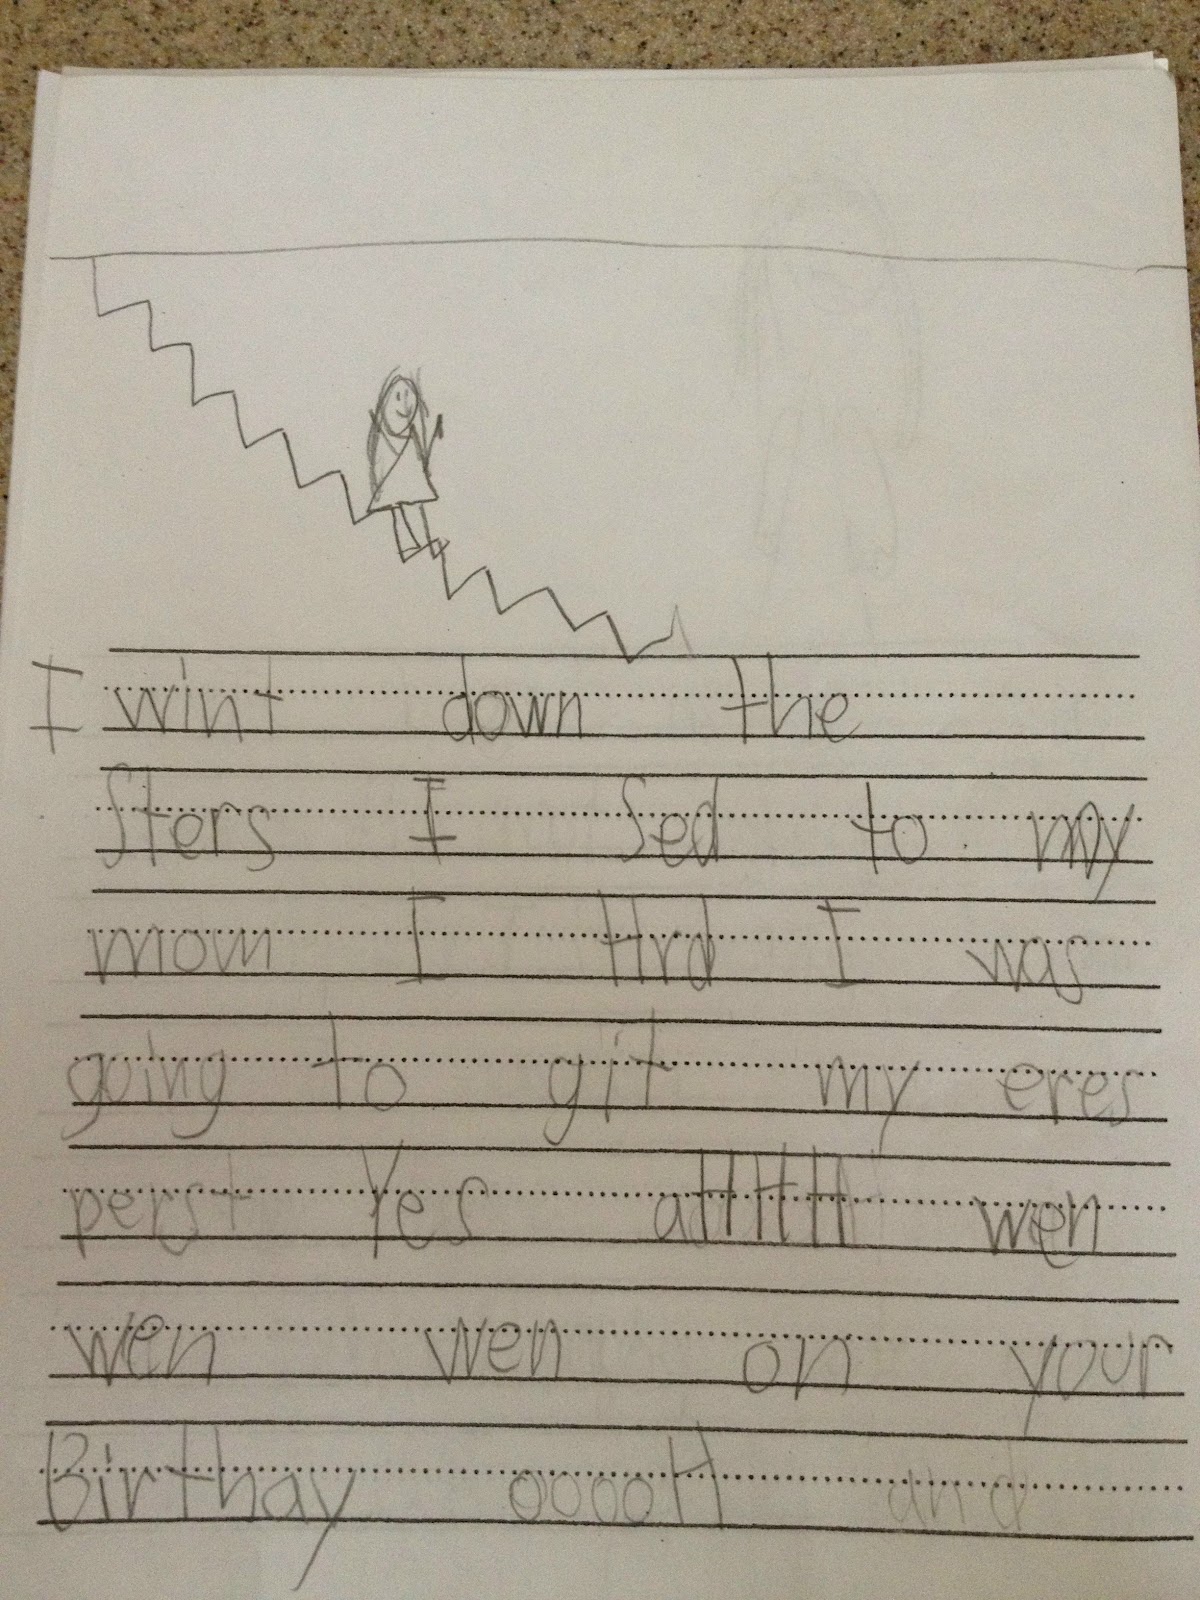 I wint down the
Sters I Sed to my
mom I Hrd I was
going to git my eres
perst Yes aHHHH wen
wen wen on your
Birthay ooooH and